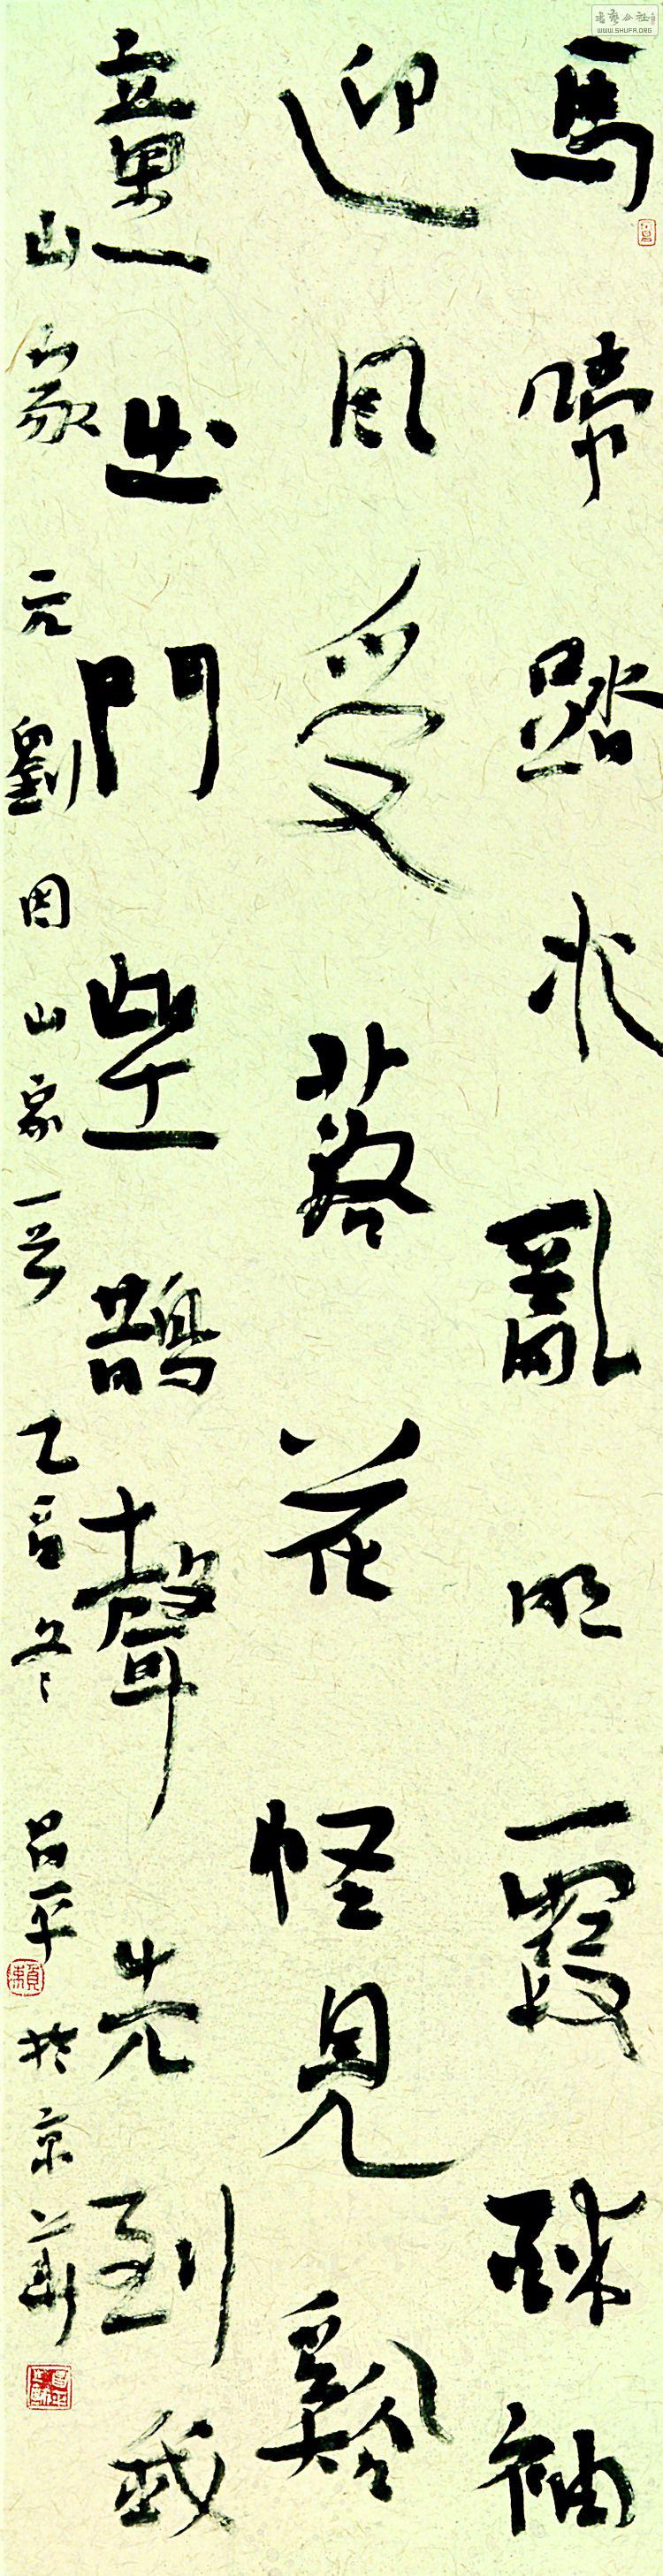 馬蹄踏水亂明霞醉袖
迎風受落花怪見谿
童出門望鵲聲先到我
山家 元劉因山家一首 乙酉冬 呂平於京華
書藝公社
WWW.SHUFA.ORG